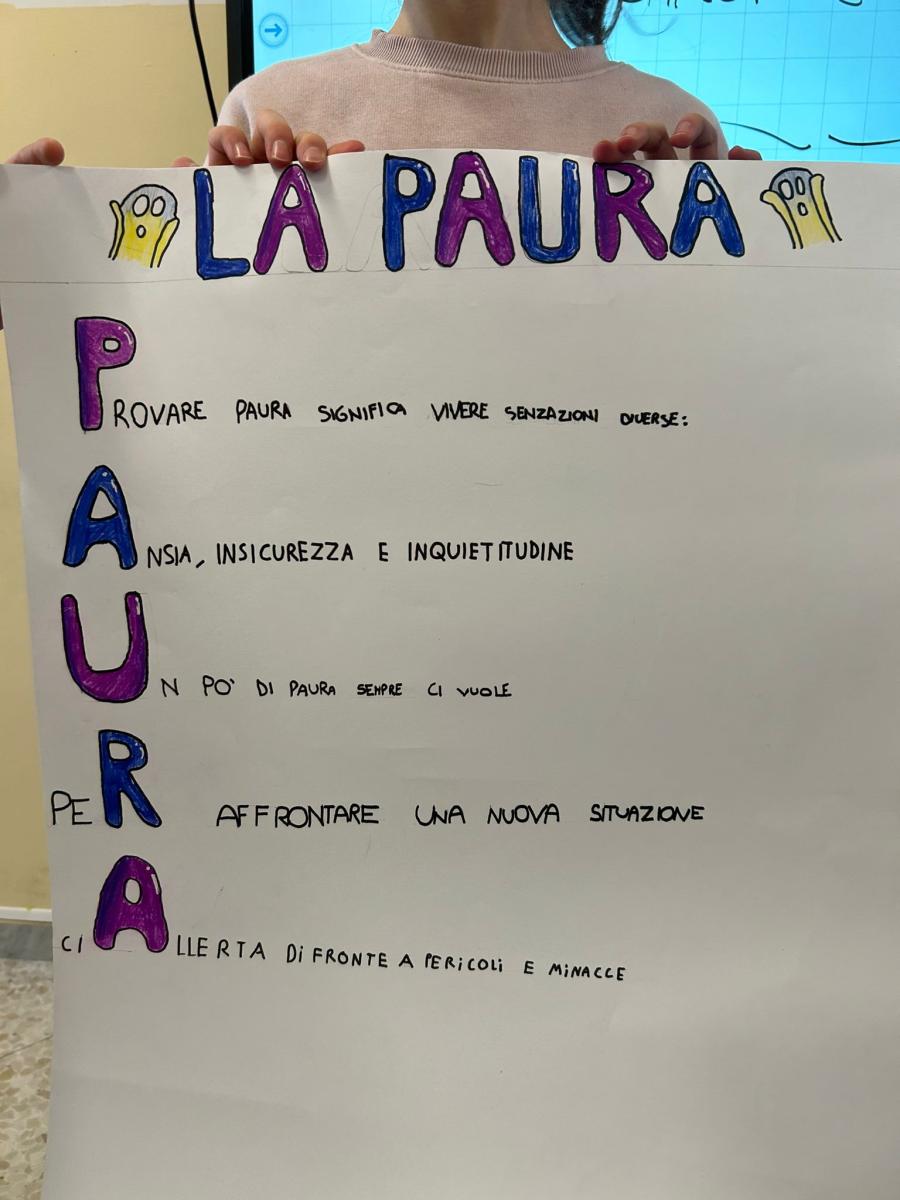 LA PAURA
PROVARE PAURA SIGNIFICA VIVERE SENZAZIONI DIVERSE:
ANSIA, INSICUREZZA E INQUIETITUDINE
UN PO' DI PAURA SEMPRE CI VUOLE
PER AFFRONTARE UNA NUOVA SITUAZIONE
CI ALLERTA Di FRONTE A PERiCOLi E MiNACCE